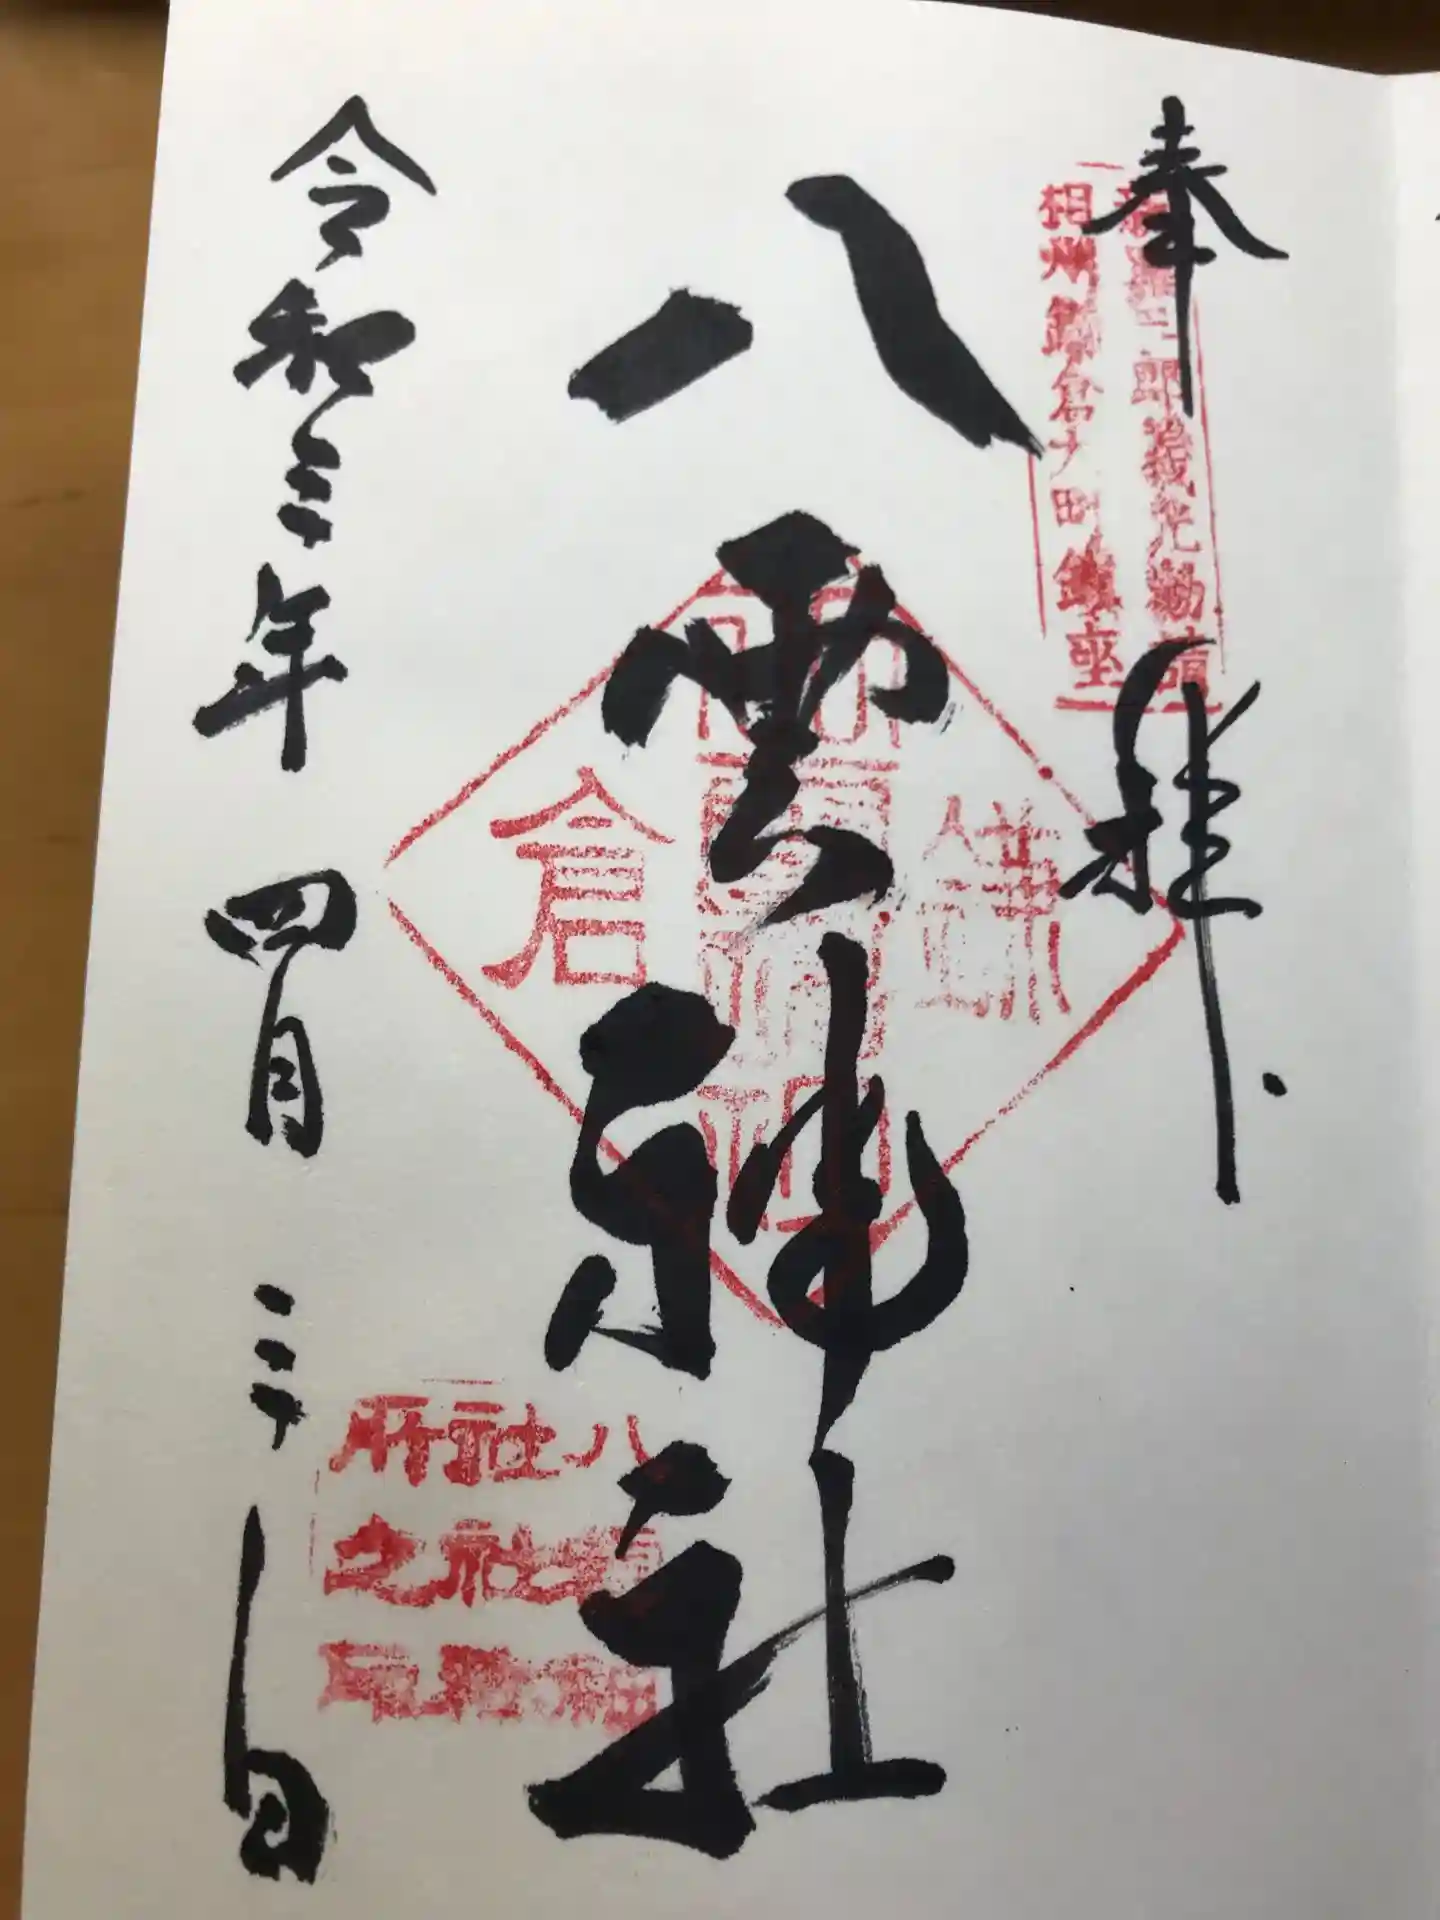 奉拝
新羅三郎義光勧請
相州鎌倉大町鎮座
八雲神社
鎌倉
八雲神
社社務
所之印
令和三年四月三日